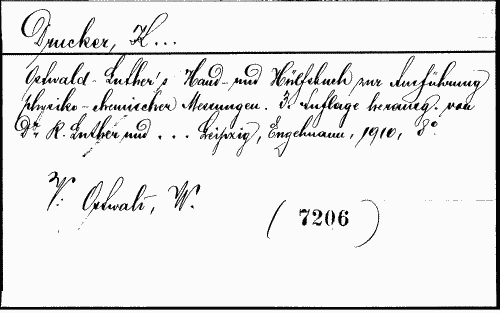 Drucker, K...
Ostwald-Luther's Hand- und Hülfsbuch zur Ausführung
physiko-chemischer Messungen. 3. Auflage herausg. von
Dr. R. Luther und ... Leipzig, Engelmann, 1910, 8°
V: Ostwald, W.
(7206)